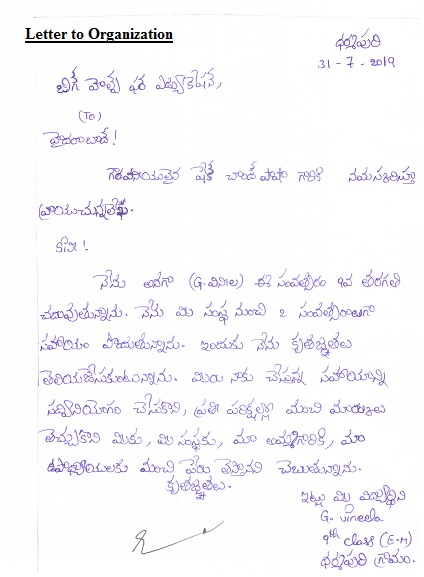 Letter to Organization
ధర్మపురి
31-7-2019
బిగ్ హెల్ప్ ఫర్ ఎడ్యుకేషన్,
(To)
హైదరాబాద్!
గౌరవనీయులైన షేక్ చాంద్ పాషా గారికి నమస్కరిస్తూ
వ్రాయుచున్నలేఖ.
నేను అనగా (G.వినీల) ఈ సంవత్సరం 9వ తరగతి
చదువుతున్నాను. నేను మీ సంస్థ నుంచి 2 సంవత్సరాలుగా
సహాయం పొందుతున్నాను. ఇందుకు నేను కృతజ్ఞతలు
తెలియజేసుకుంటున్నాను. మీరు నాకు చేస్తున్న సహాయాన్ని
సద్వినియోగం చేసుకొని, ప్రతి పరీక్షల్లో మంచి మార్కులు
తెచ్చుకొని మీకు, మీ సంస్థకు, మా అమ్మగారికి, మా
ఉపాధ్యాయులకు మంచి పేరు తెస్తానని చెబుతున్నాను.
కృతజ్ఞతలు.
ఇట్లు మీ విద్యార్థిని
G. vineela
9th class (E-M)
ధర్మపురి గ్రామం.